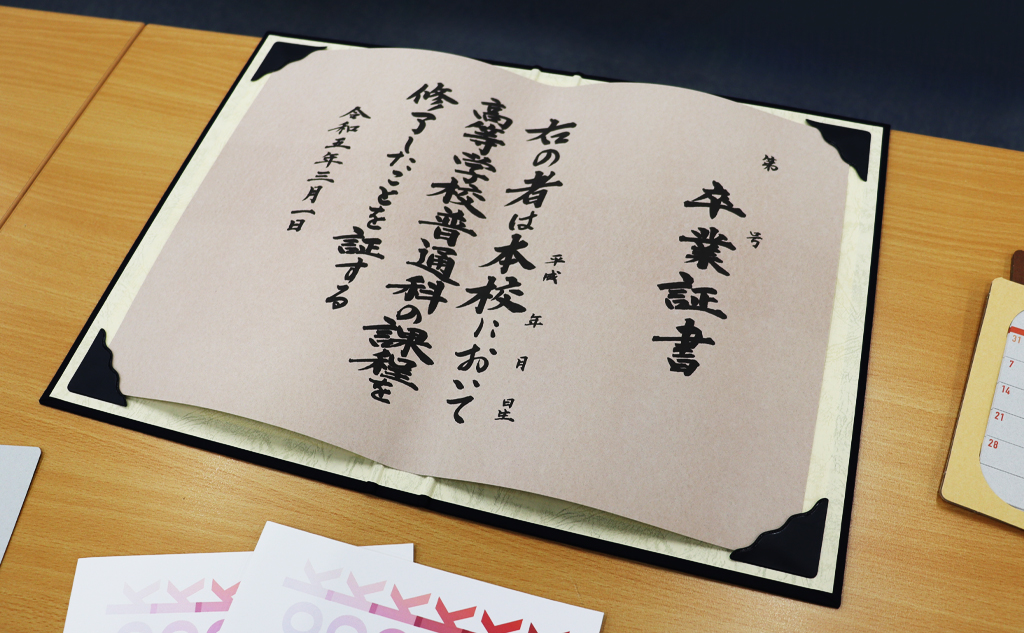 第　号
卒業証書
平成　年　月　日生
右の者は本校において
高等学校普通科の課程を
修了したことを証する
令和五年三月一日
31
7
14
21
28